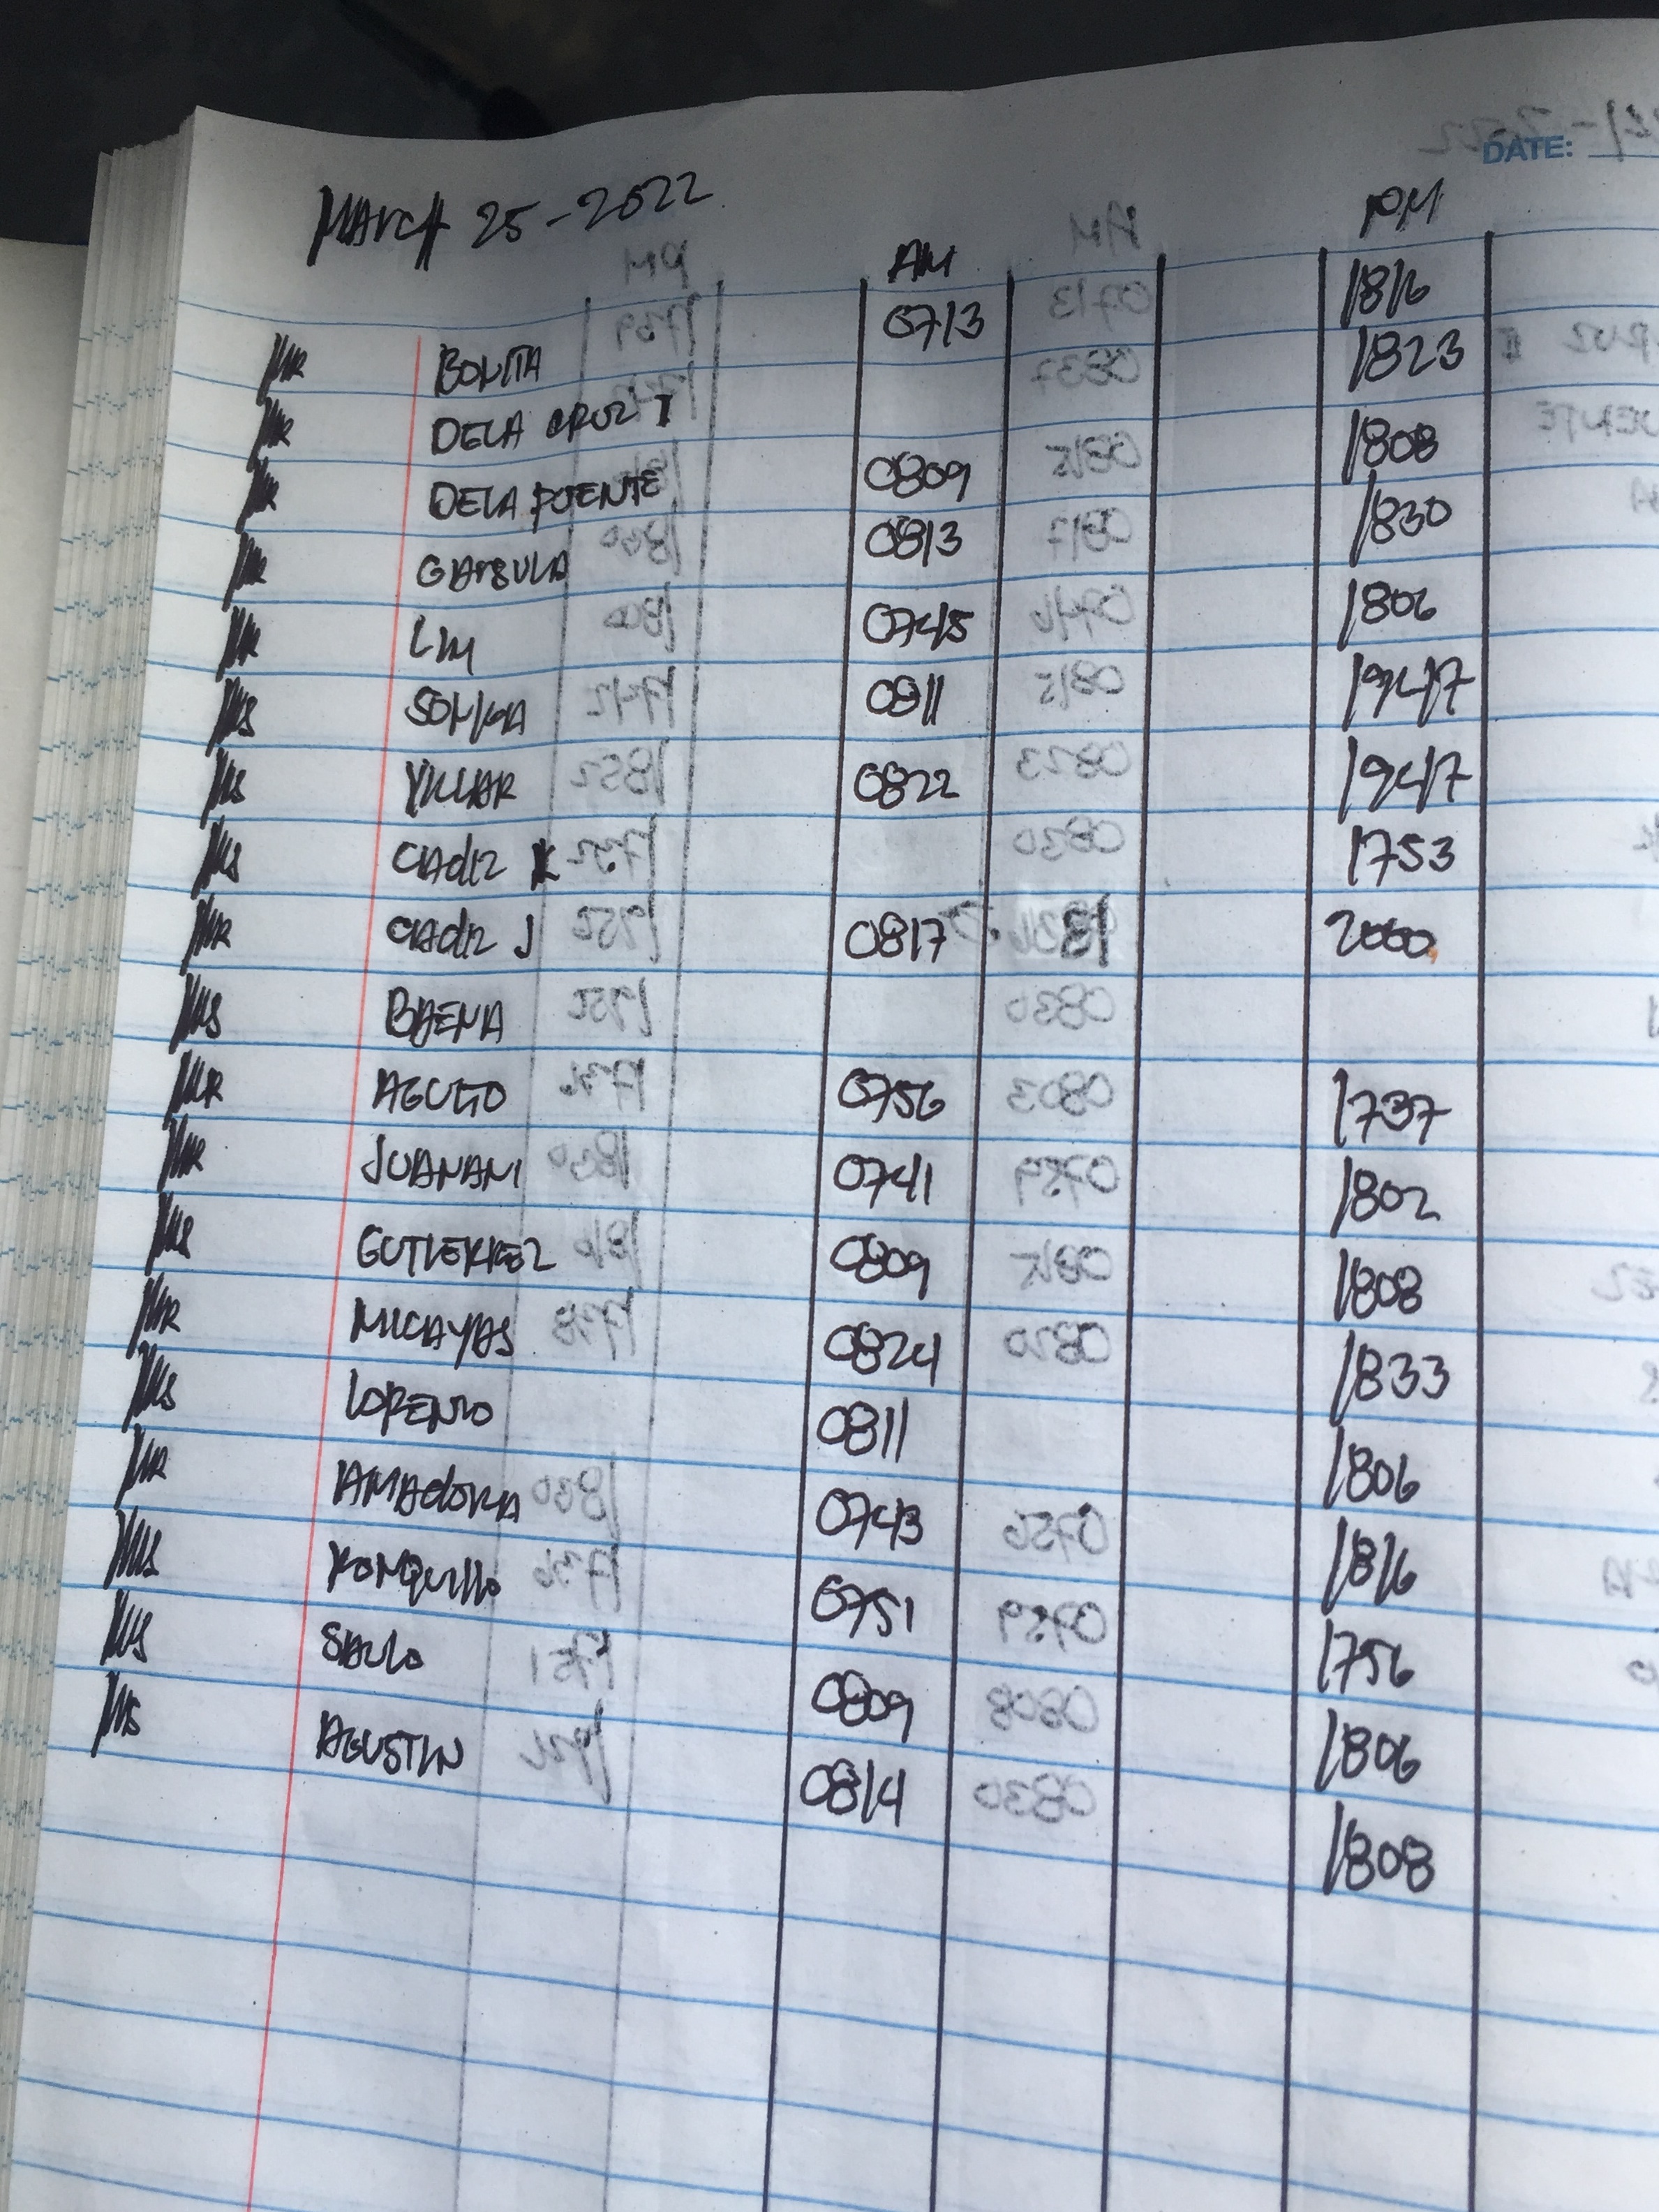 MARCH 25-2022
DATE:
AM PM
MR BONITA 0713 1816
MR DELA CRUZ I 1823
MR DELA PUENTE 0809 1808
MR 0813 1830
MR LIM 0745 1806
MS SONIGA 0811 1947
MS VILLAR 0822 1947
MS CADIZ K 1753
MR CADIZ J 0817 2000
MS BAENA
MR AGUTO 0756 1737
MR JUANANI 0741 1802
MS GUTIERREZ 0809 1808
MR MICAYAS 0824 1833
MS LORENZO 0811 1806
MR AMADORA 0743 1816
MS RONQUILLO 0751 1756
MS SAULO 0809 1806
MS AGUSTIN 0814 1808